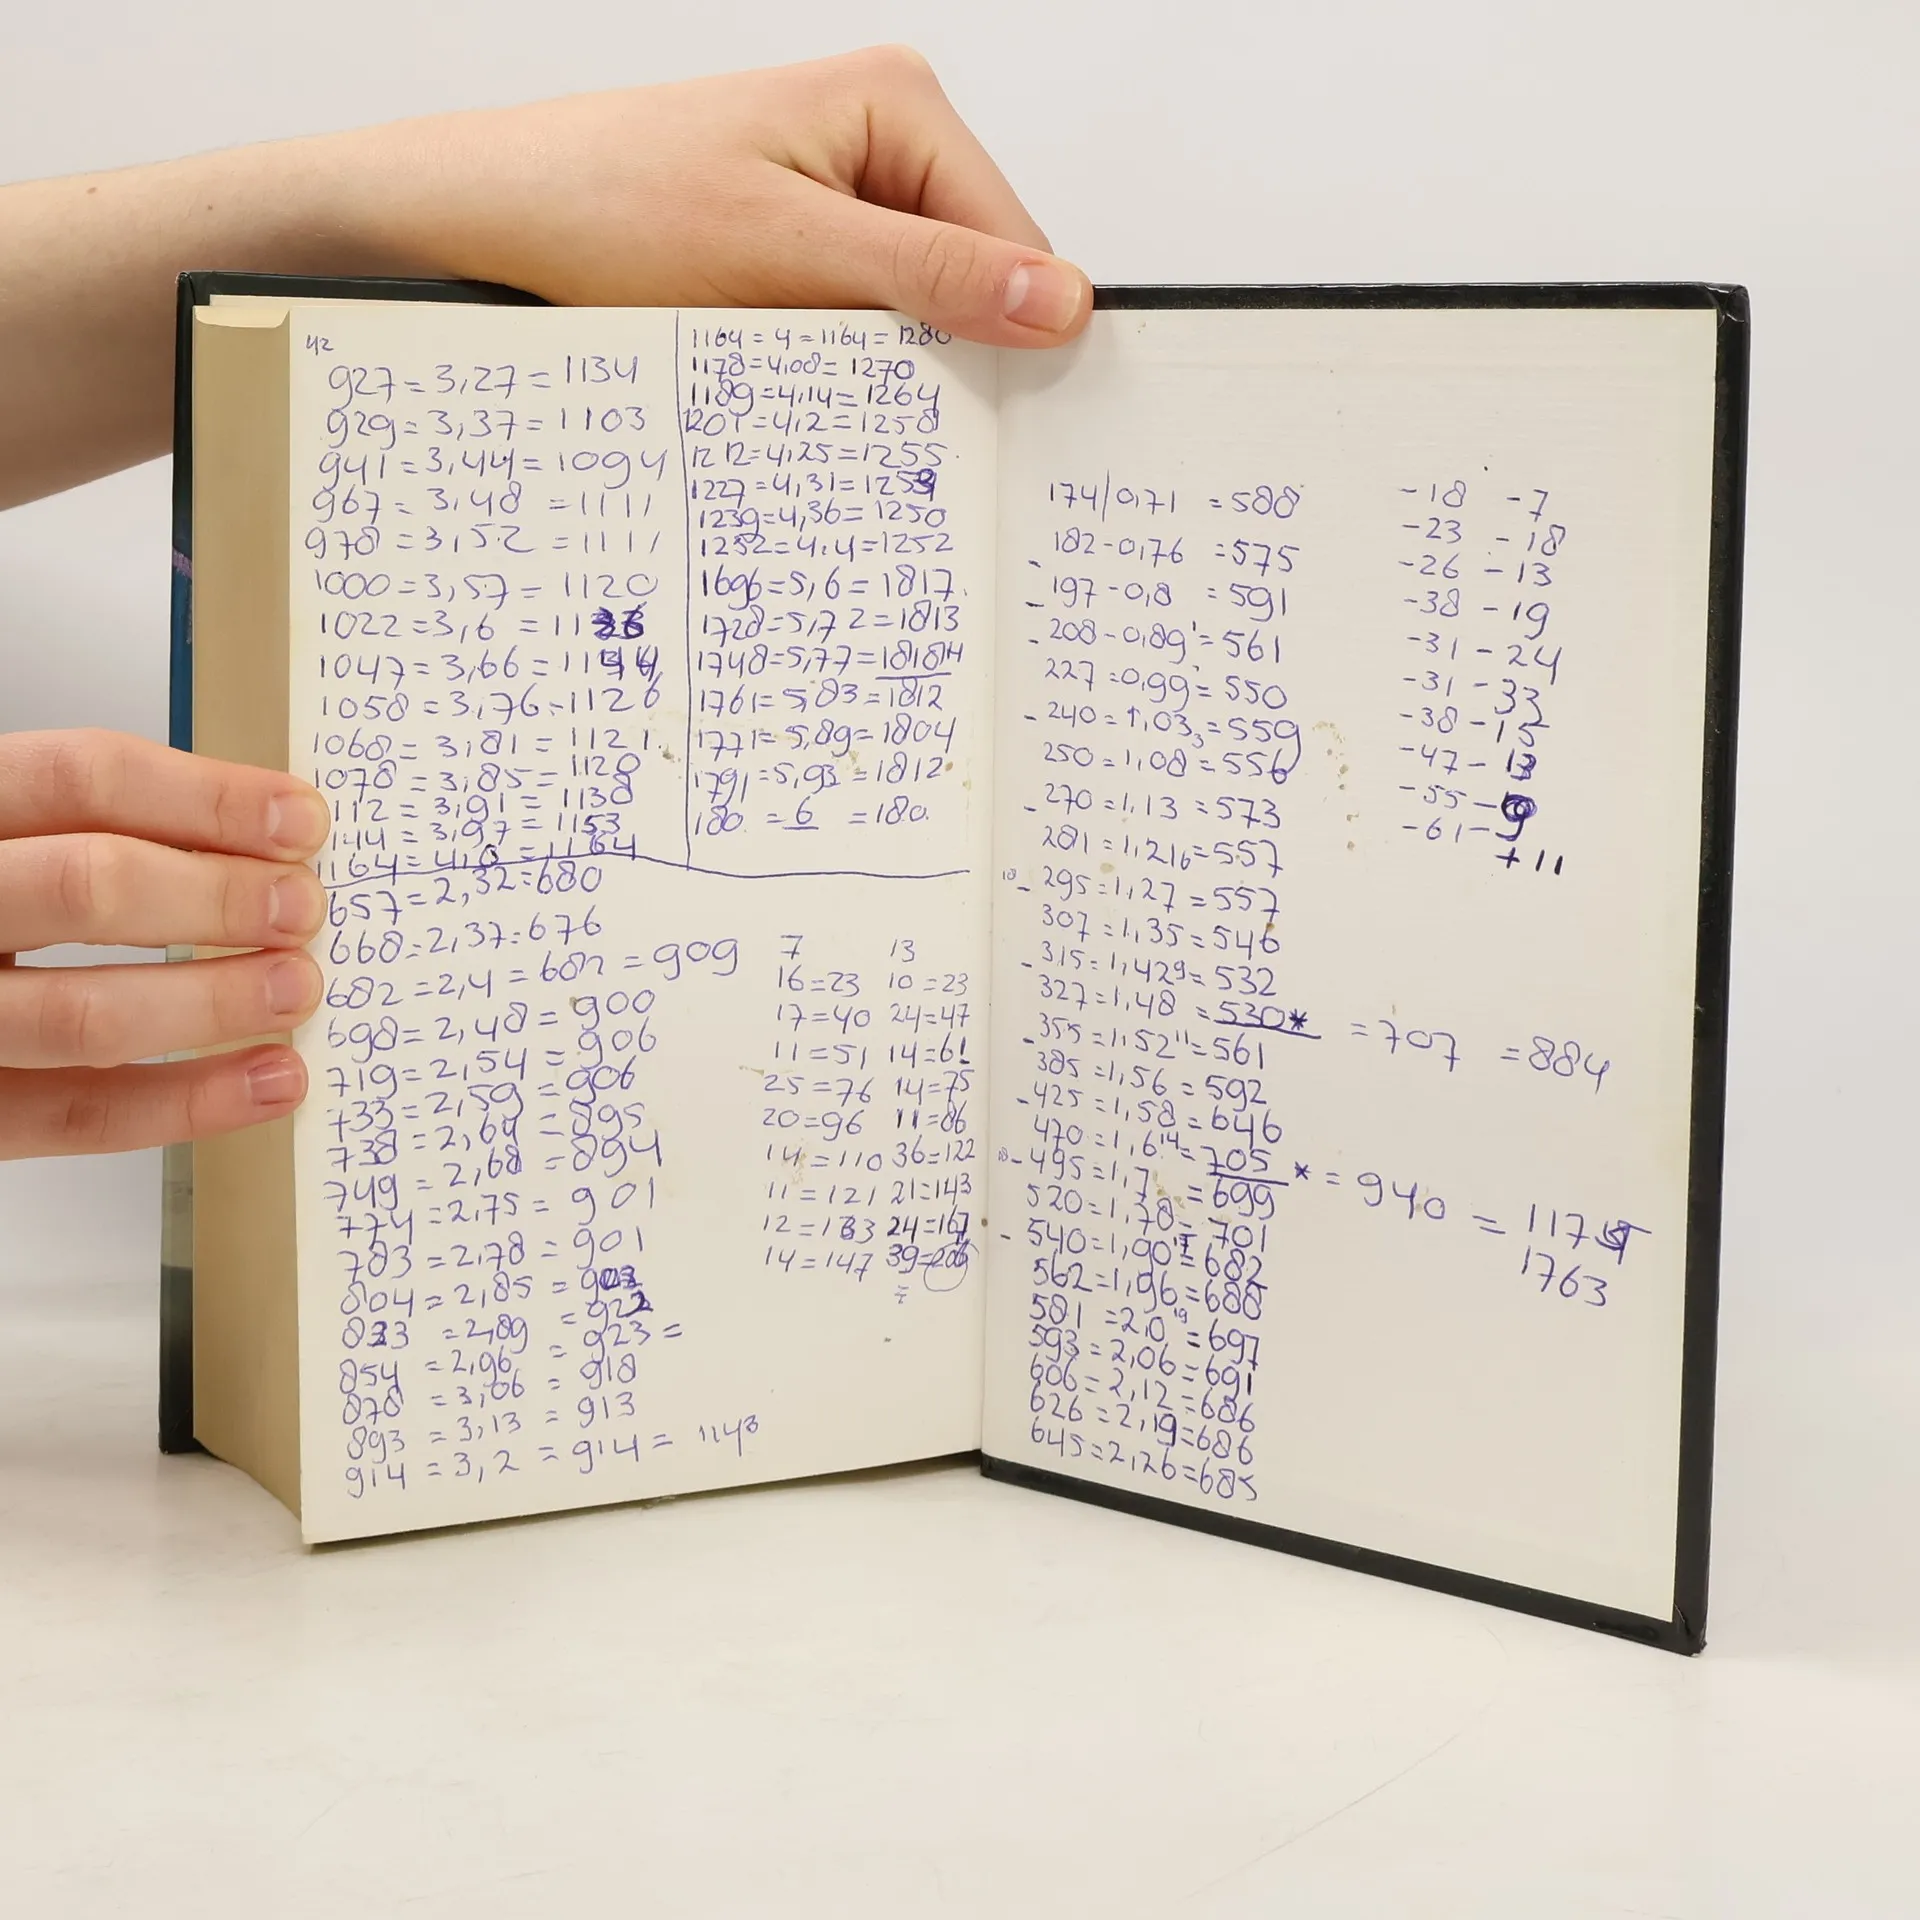 42
927=3,27=1134
929=3,37=1103
941=3,44=1094
967=3,48=1111
978=3,52=1111
1000=3,57=1120
1022=3,6=11
1047=3,66=11
1058=3,76=1126
1068=3,81=1121.
1078=3,85=1120
1112=3,91=1138
1144=3,97=1153
1164=4,0=1164
1164=4=1164=1280
1178=4,08=1270
1189=4,14=1264
1201=4,2=1258
1212=4,25=1255.
1227=4,31=125
1239=4,36=1250
1252=4,4=1252
1696=5,6=1817.
1728=5,72=1813
1748=5,77=
1761=5,83=1812
1771=5,89=1804
1791=5,93=1812
180.=6=180.
657=2,32=680
668=2,37=676
682=2,4=682=909
698=2,48=900
719=2,54=906
733=2,59=906
738=2,64=895
749=2,68=894
774=2,75=901
783=2,78=901
804=2,85=903
833=2,89=922
854=2,96=923=
878=3,06=918
893=3,13=913
914=3,2=914=1143
7 13
16=23 10=23
17=40 24=47
11=51 14=61
25=76 14=75
20=96 11=86
14=110 36=122
11=121 21=143
12=133 24=167
14=147 39=206
174/0,71=588
182-0,76=575
-197-0,8=591
-208-0,89=561
-227=0,99=550
-240=1,03=559
250=1,08=556
-270=1,13=573
281=1,216=557
10-295=1,27=557
307=1,35=546
-315=1,429=532
327=1,48=530*=707=884
-355=1,52"=561
385=1,56=592
-425=1,58=646
470=1,614=705*=940=117
-495=1,7=699
520=1,78=701
-540=1,90=682
562=1,96=688
581=2,0 19=697
593=2,06=691
606=2,12=686
626=2,19=686
645=2,26=685
1763
-18 -7
-23 -18
-26 -13
-38 -19
-31 -24
-31 -33
-38 -15
-47 -13
-55 -
-61 -9
+11